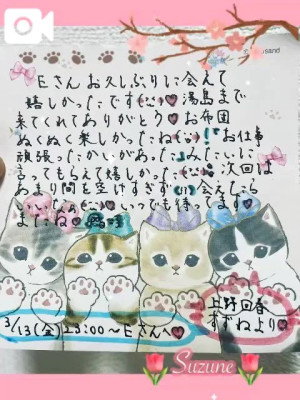 Eさん お久しぶりに会えて
嬉しかったです♥湯島まで
来てくれてありがとう♥お布団
ぬくぬく楽しかったね!!お仕事
頑張ったかいがあった♪みたいに
言ってもらえて嬉しかった♡次回は
あまり間を空けすぎず会えたら
いいな♥いつでも待ってます♥
またね♥
上野回春
すずねより♥
3/13(金)23:00〜Eさんへ♥
Suzune
sand